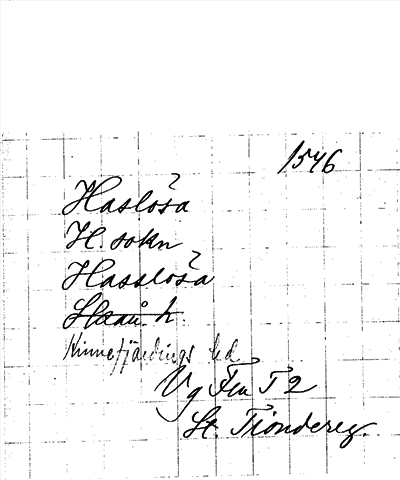 1546
Haslösa
H. sokn
Hasslösa
Skåni. h.
Kinnefjärdings hd
Vg Fru T 2
St. Tiondereg.